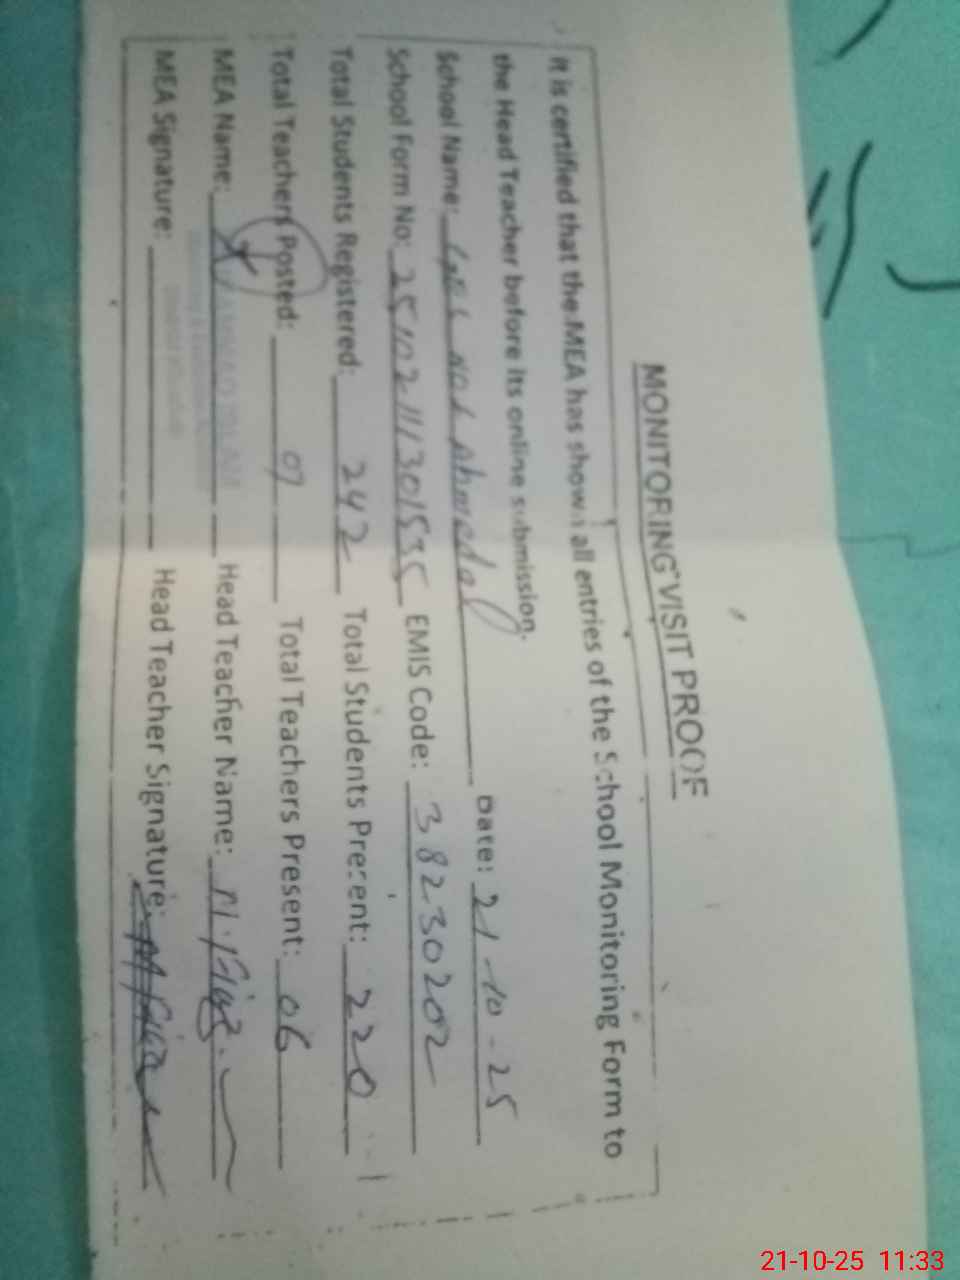 MONITORING VISIT PROOF
It is certified that the MEA has shown all entries of the School Monitoring Form to
the Head Teacher before its online submission.
School Name: Date: 21-10-25
School Form No: EMIS Code: 38230202
Total Students Registered: 242 Total Students Present: 220
Total Teachers Posted: 07 Total Teachers Present: 06
MEA Name: Head Teacher Name:
MEA Signature: Head Teacher Signature:
21-10-25 11:33